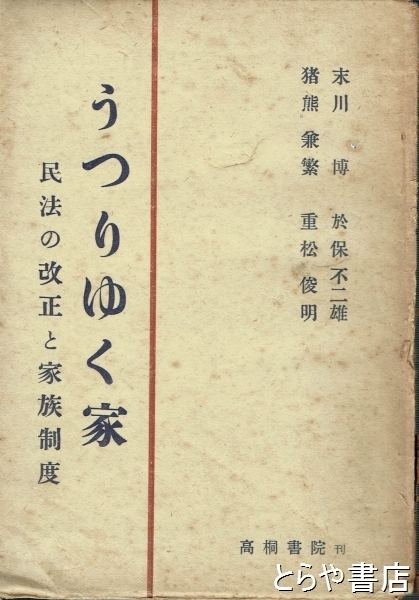 末川 博 於保不二雄
猪熊兼繁 重松俊明
うつりゆく家
民法の改正と家族制度
高桐書院 刊
とらや書店